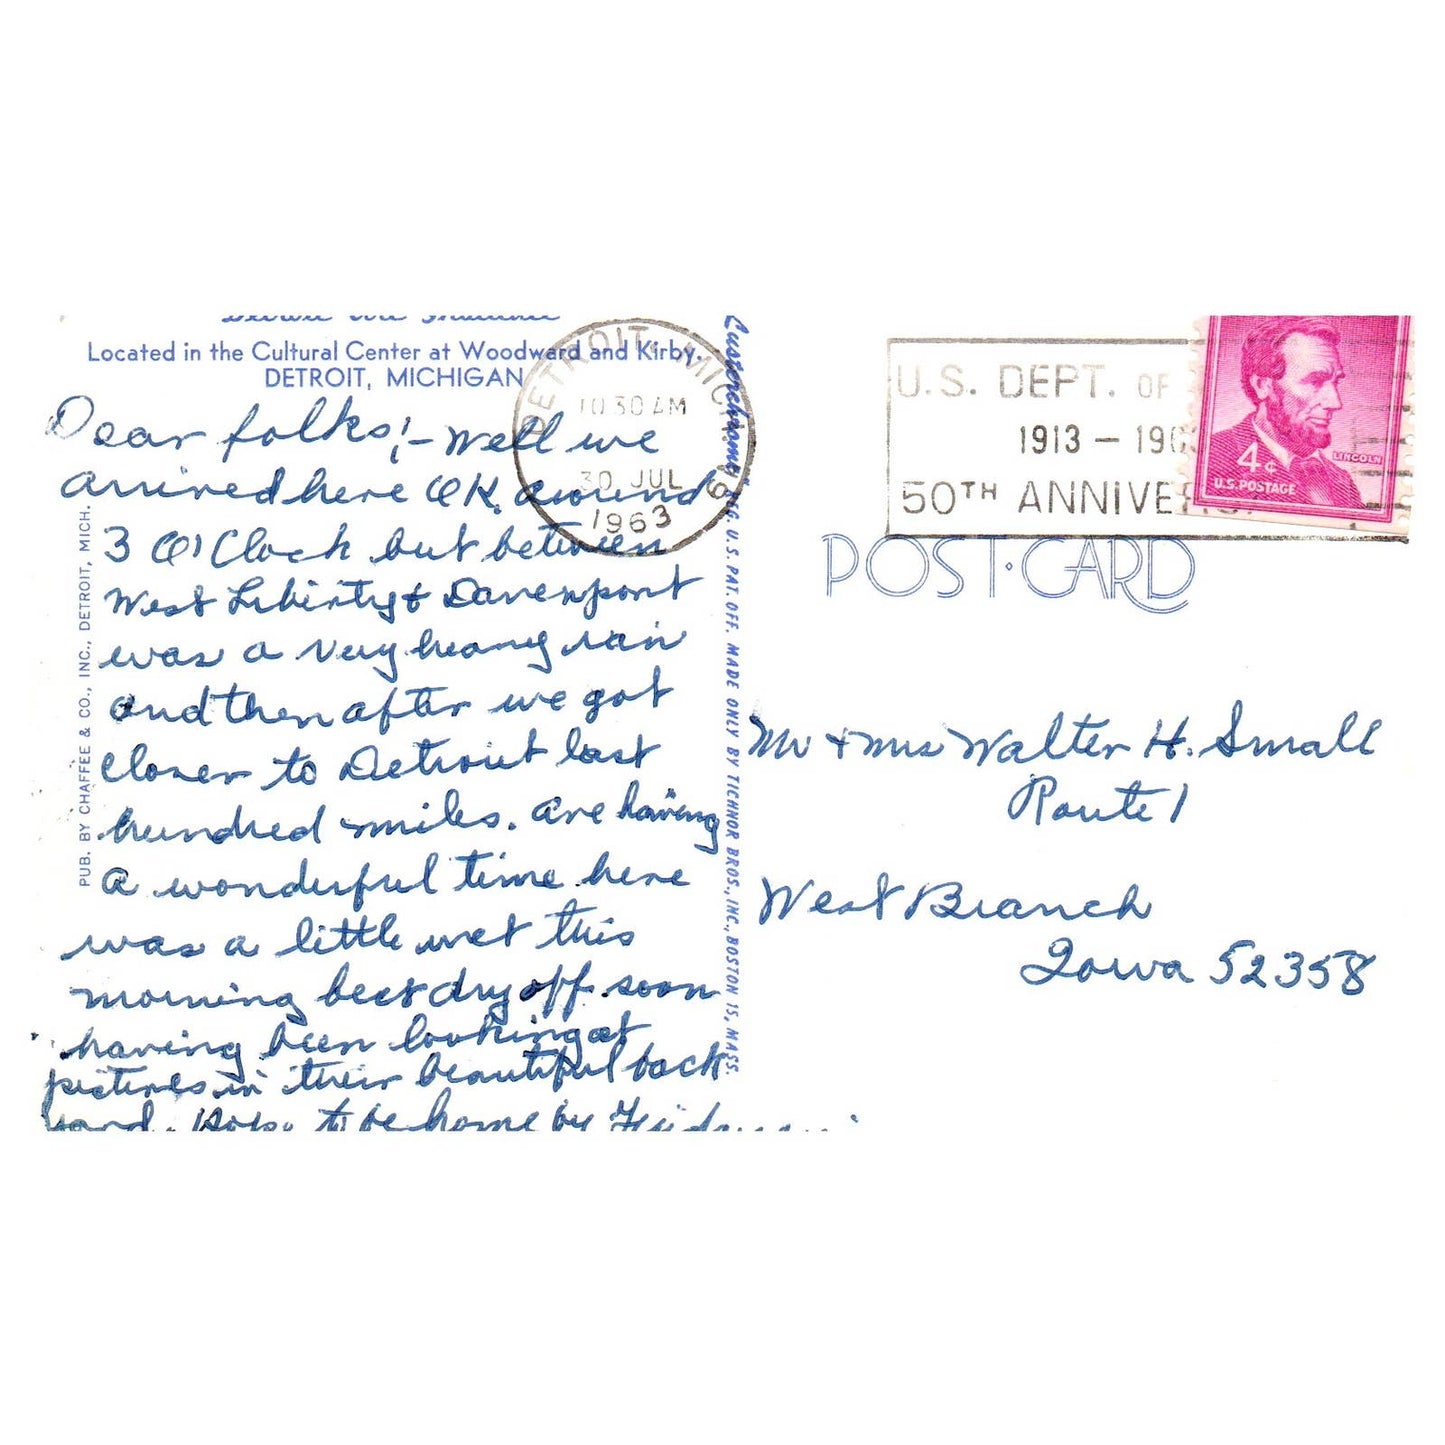 Located in the Cultural Center at Woodward and Kirby.
DETROIT, MICHIGAN
Dear folks;- Well we
arrived here OK around
3 O'Clock but between
West Liberty & Davenport
was a very heavy rain
and then after we got
closer to Detroit last
hundred miles. are having
a wonderful time here
was a little wet this
morning but dry off soon
having been looking at
pictures in their beautiful back
yard. to be home by
PUB. BY CHAFFEE & CO., INC., DETROIT, MICH.
DETROIT, MICH. 19
10 30 AM
30 JUL
1963
"Lusterchrome" REG. U. S. PAT. OFF. MADE ONLY BY TICHNOR BROS., INC., BOSTON 15, MASS.
U.S. DEPT. OF
1913 – 196
50TH ANNIVE
4¢
LINCOLN
U.S. POSTAGE
POST·CARD
Mr & Mrs Walter H. Small
Route 1
West Branch
Iowa 52358